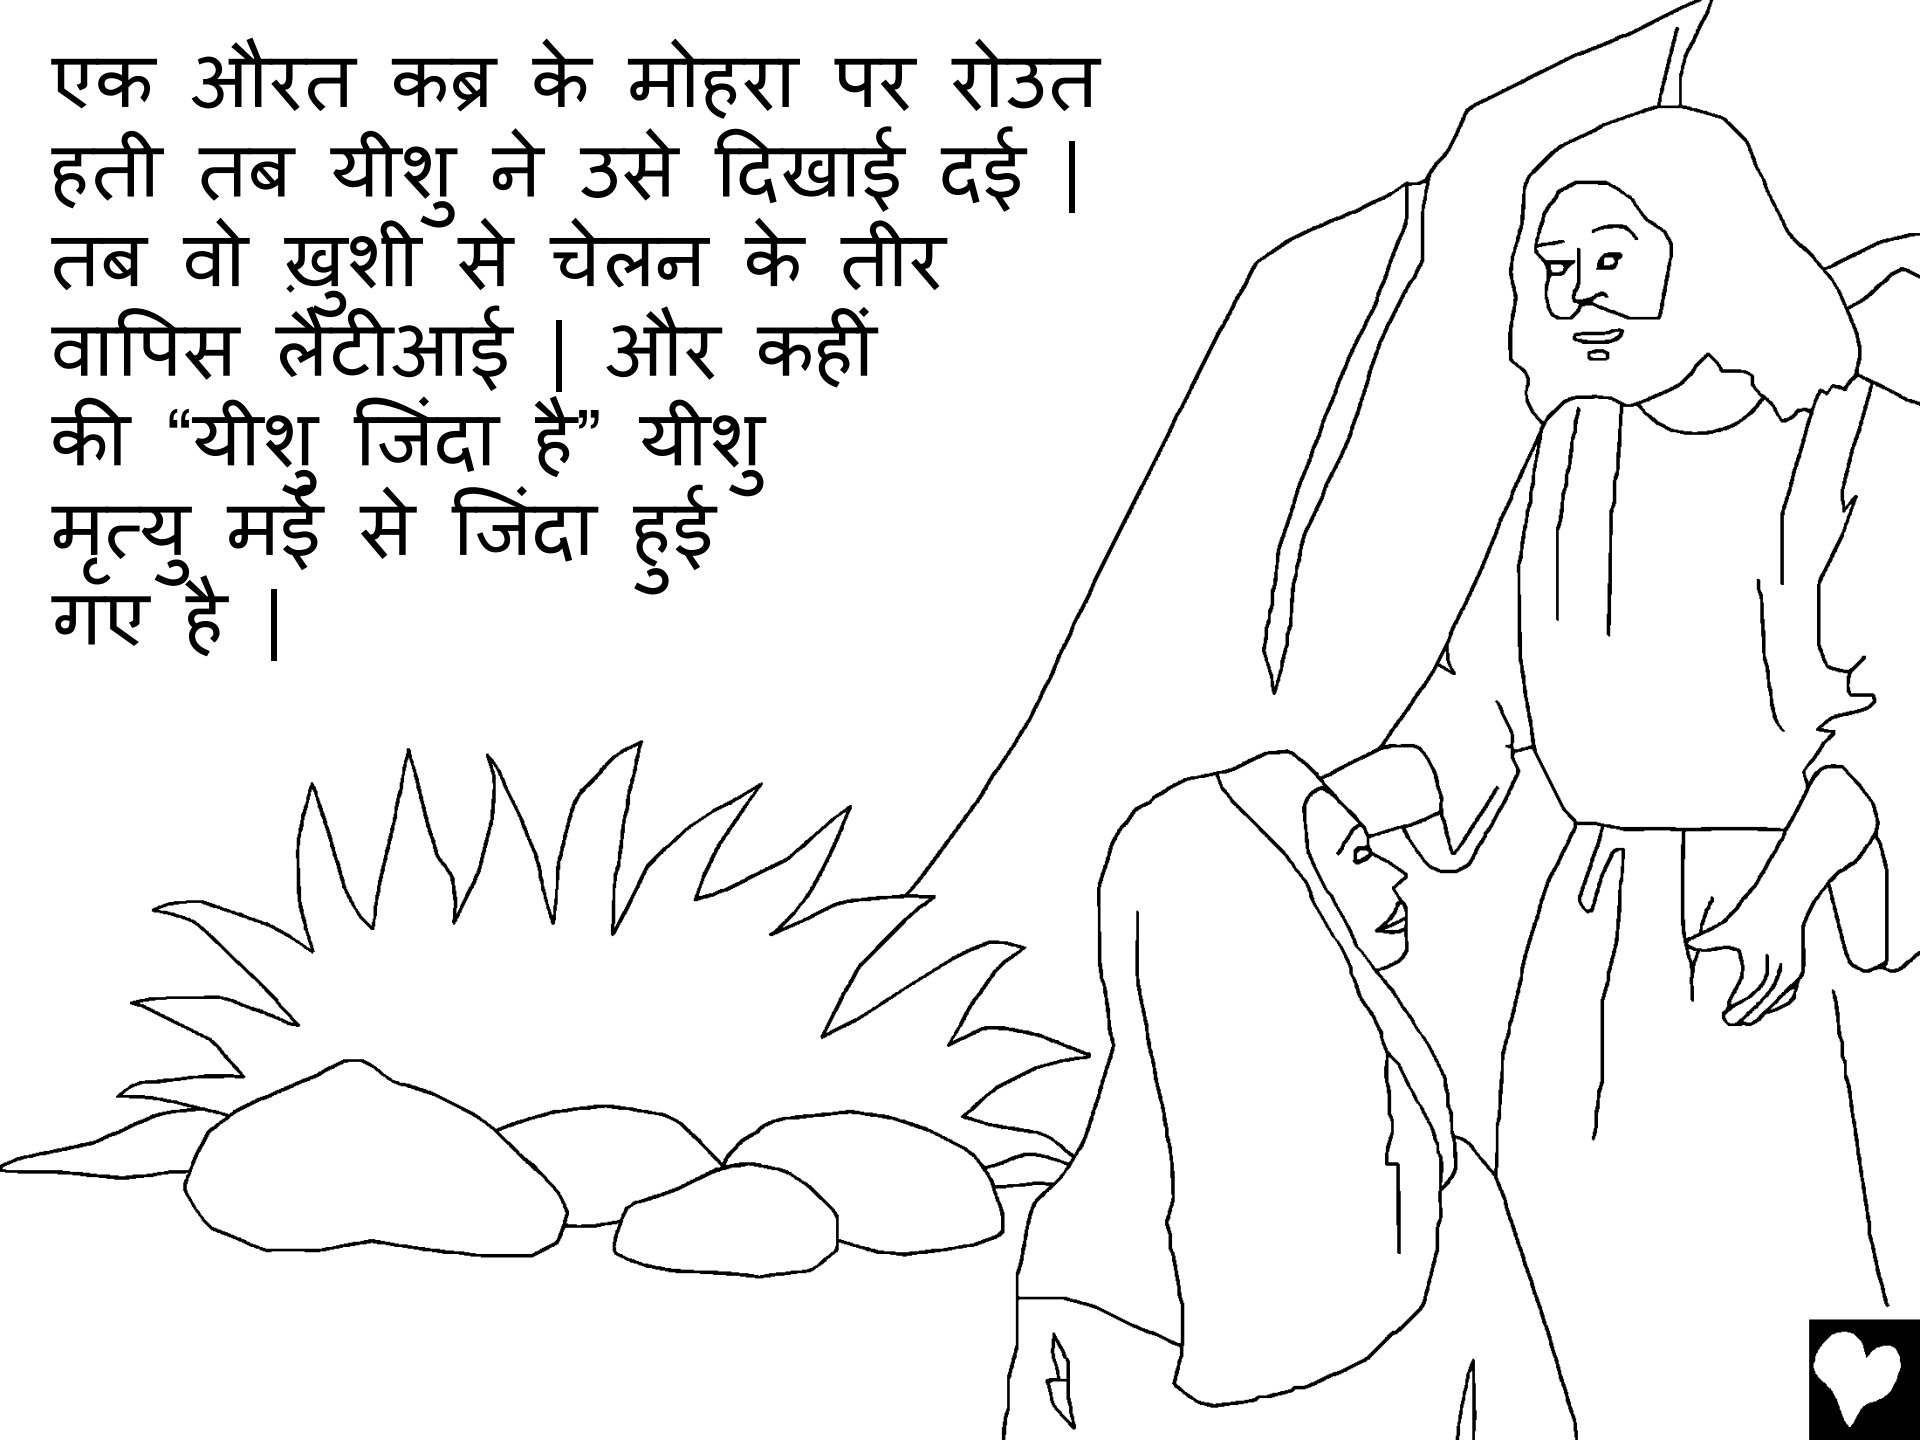 एक औरत कब्र के मोहरा पर रोउत
हती तब यीशु ने उसे दिखाई दई |
तब वो ख़ुशी से चेलन के तीर
वापिस लैटीआई | और कहीं
की “यीशु जिंदा है” यीशु
मृत्यु मई से जिंदा हुई
गए है |